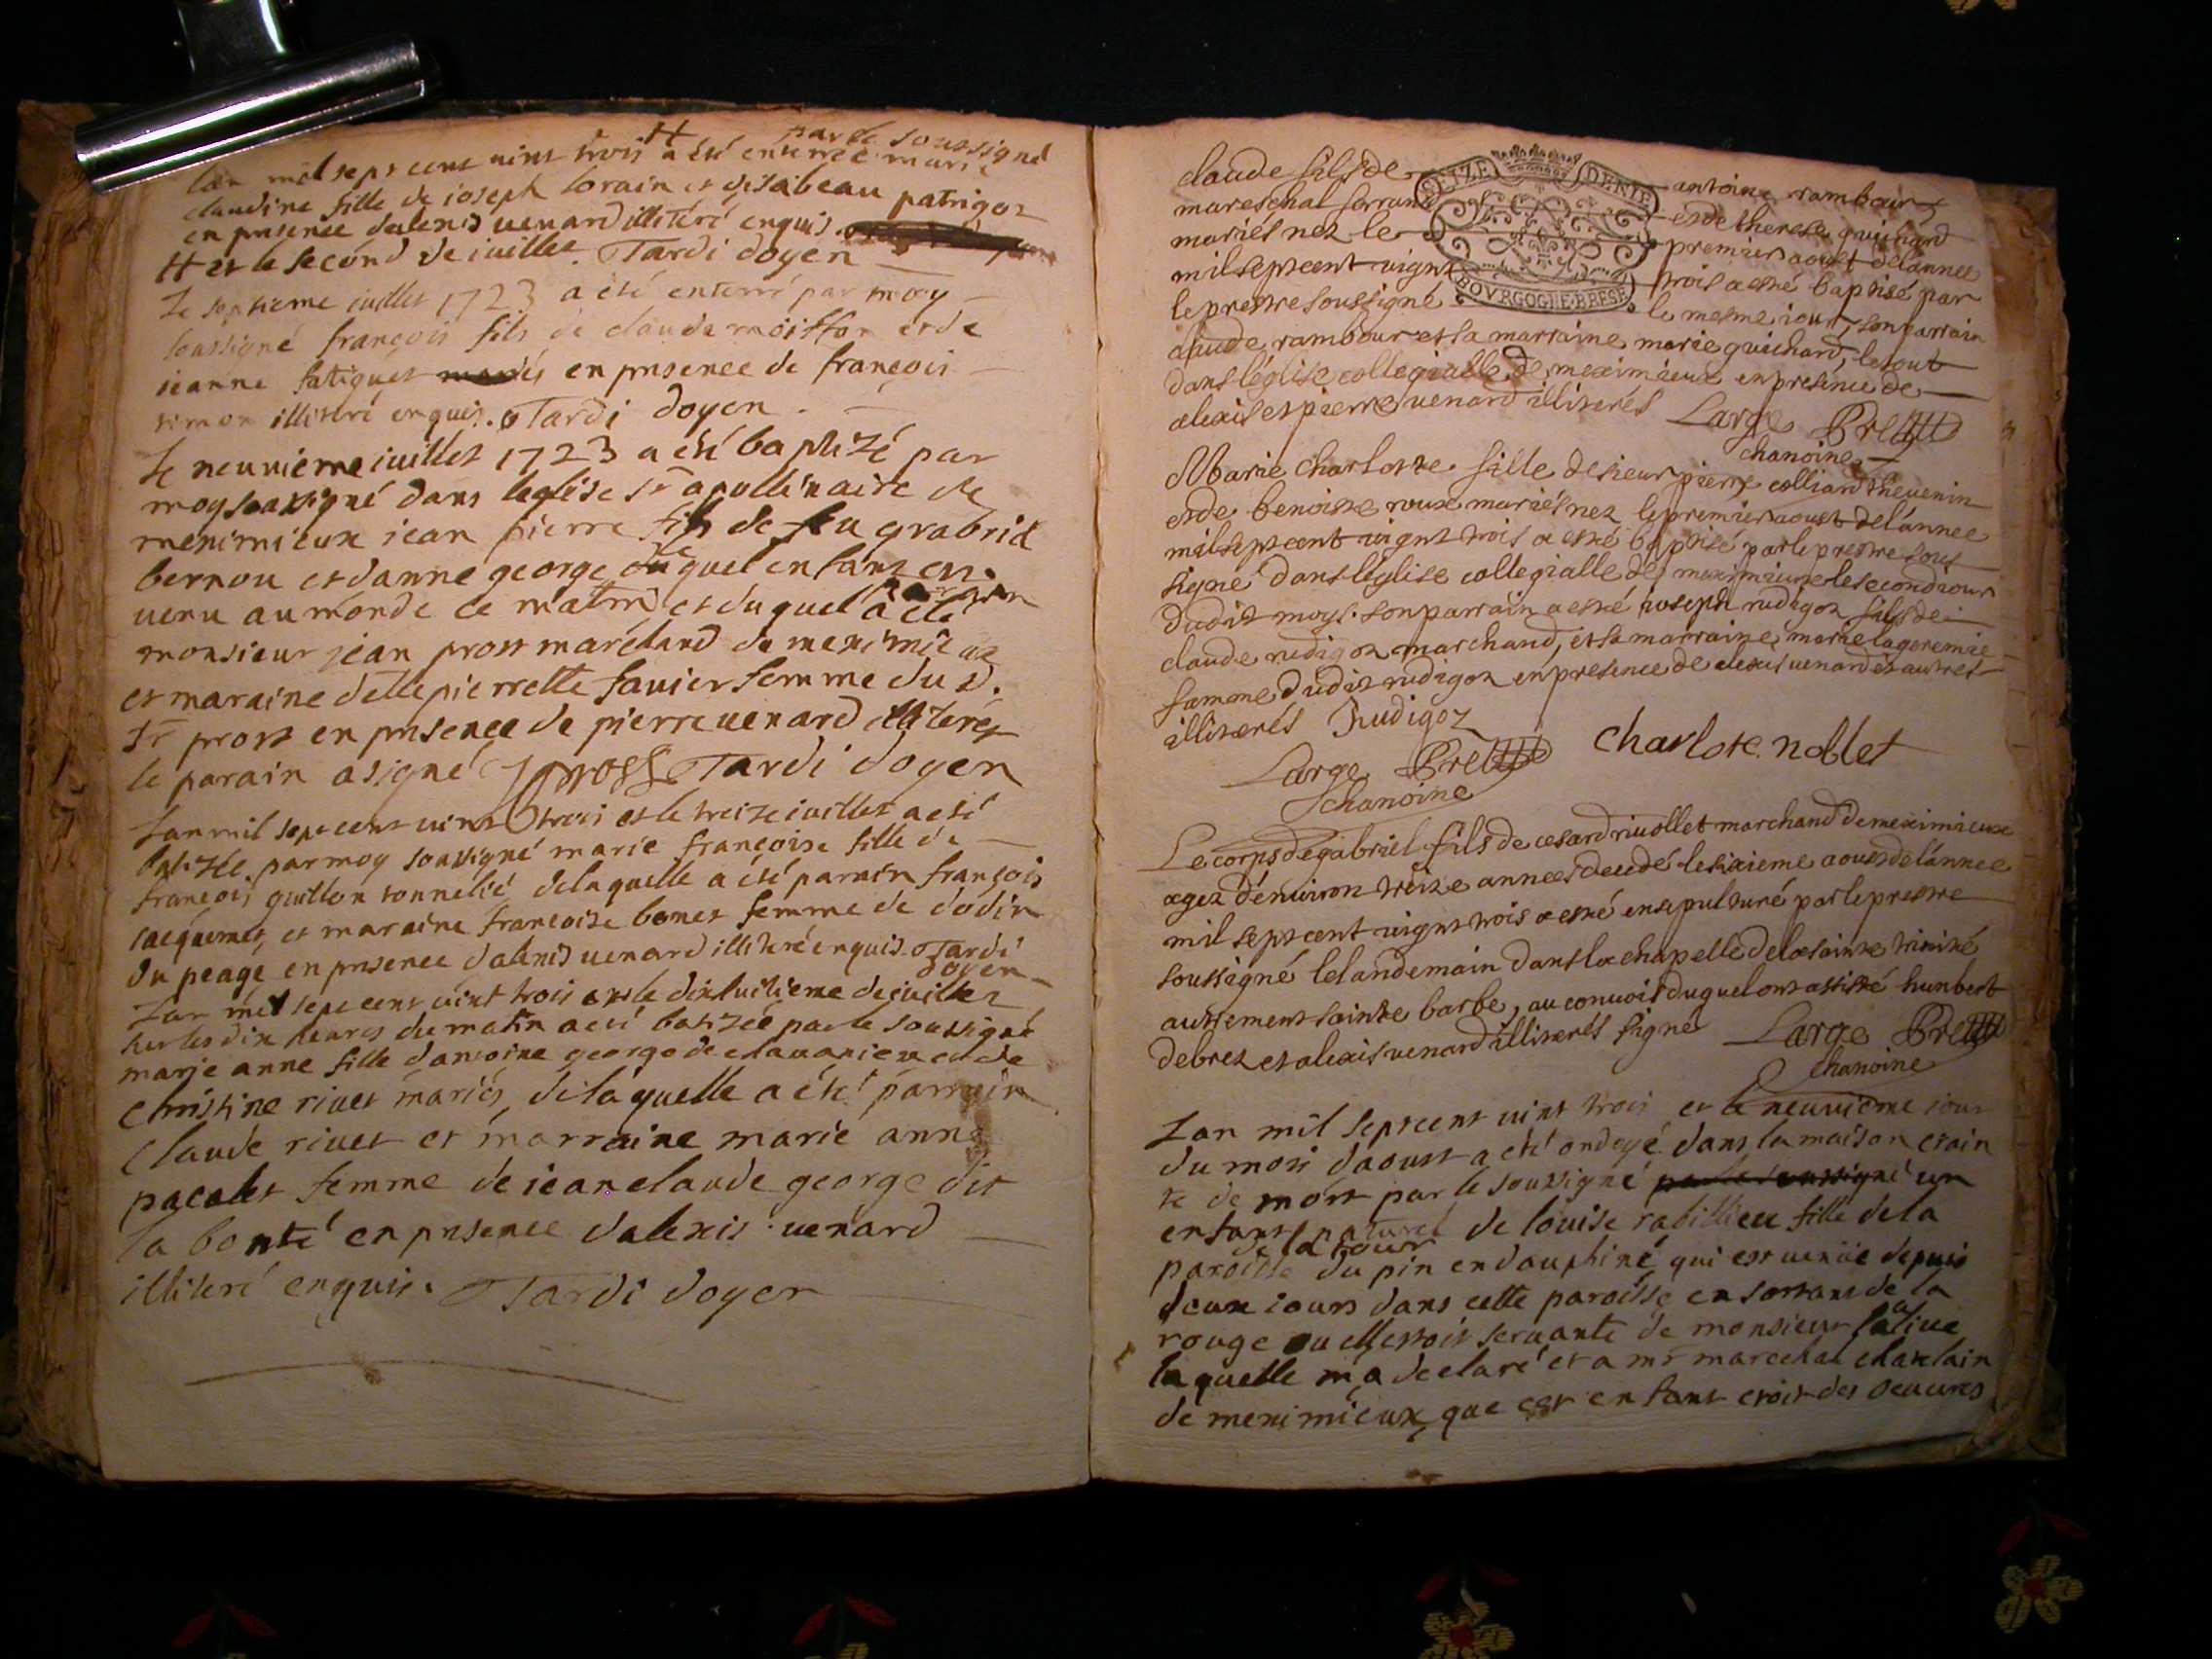 par le soussigné
lan mil sept cent vint trois H a été enterrée marie
claudine fille de ioseph lorain et disabeau patrigoz
en pnsence dalexis venard illitéré enquis
H et le second de iuillet. Tardi doyen
Le septieme iuillet 1723 a été enterré par moy
soussigné françois fils de claude moiffon et de
ieanne fatiguet en pnsence de françois
simon illitéré enquis. Tardi doyen
Le neuvieme iuillet 1723 a été baptizé par
moy soussigné dans leglise st apollinaire de
meximieux iean pierre fils de feu grabriel
bernou et danne george lequel enfant est
venu au monde ce matin et duquel a été parrain
monsieur jean prost marchand de meximieux
et maraine delle pierrette favier femme du d.
sr prost en pnsence de pierre venard illiterés
le parain a signé J prost Tardi doyen
Lan mil sept cent vint trois et le treize iuillet a été
batizée par moy soussigné marie françoise fille de
françois guillon tonnelié delaquelle a été parain françois
iacquemet, et maraine francoise bonet femme de dodin
du peage en pnsence dalexis venard illiteré enquis. Tardi
doyen
Lan mil sept cent vint trois et le dixhuitieme de iuillet
sur les dix heures du matin a été batizée par le soussigné
marie anne fille dantoine george de chavanieu et de
christine rivet mariés, de laquelle a été parrain
claude rivet et marraine marie anne
pacalet femme de iean claude george dit
la bonté en pnsence dalexis venard
illiteré enquis. Tardi doyen
SEIZE DENIE
BOVRGOGNE·BRESE
claude fils de antoine rambour
mareschal ferrand et de therese guichard
mariés nez le premier aoust de lannee
mil sept cent vignt trois a esté baptisé par
le prestre soussigné le mesme iour, son parrain
claude rambour et sa marraine marie guichard, le tout
dans léglise collegialle de meximieux en presence de
alexis et pierre venard illiterés Large Bre
chanoine
Marie Charlotte fille de sieur pierre colliard thevenin
et de benoiste roux mariés nez le premier aoust de lannee
mil sept cent vignt trois a esté baptisé par le prestre sous
signé dans léglise collegialle de meximieux le second iour
dudit moys. son parrain a esté ioseph rudigoz fils de
claude rudigoz marchand, et sa marraine marie
famme dudit rudigoz en presence de alexis venard et autres
illiterés Rudigoz
Large Bre charlote noblet
chanoine
Le corps de gabriel fils de cesard rivollet marchand de meximieux
agez dénviron treize annees decedé le sixieme aoust de lannee
mil sept cent vignt trois a esté ensepulturé par le prestre
soussigné le landemain dans la chapelle de la sainte trinité
autrement sainte barbe, au convois duquel ont assisté humbert
debrez et alexis venard illiterés signé Large Bre
chanoine
Lan mil sept cent vint trois et le neuvieme iour
du mois daoust a été ondoyé dans la maison crain
te de mort par le soussigné un
enfant naturel de louise rabillieu fille de la
paroisse de la tour du pin en dauphiné qui est venüe depuis
deux iours dans cette paroisse en sortant de la
rouge ou elle estoit servante de monsieur
laquelle m'a declaré et a mr marechal chatelain
de meximieux que cet enfant etoit des oeuvres